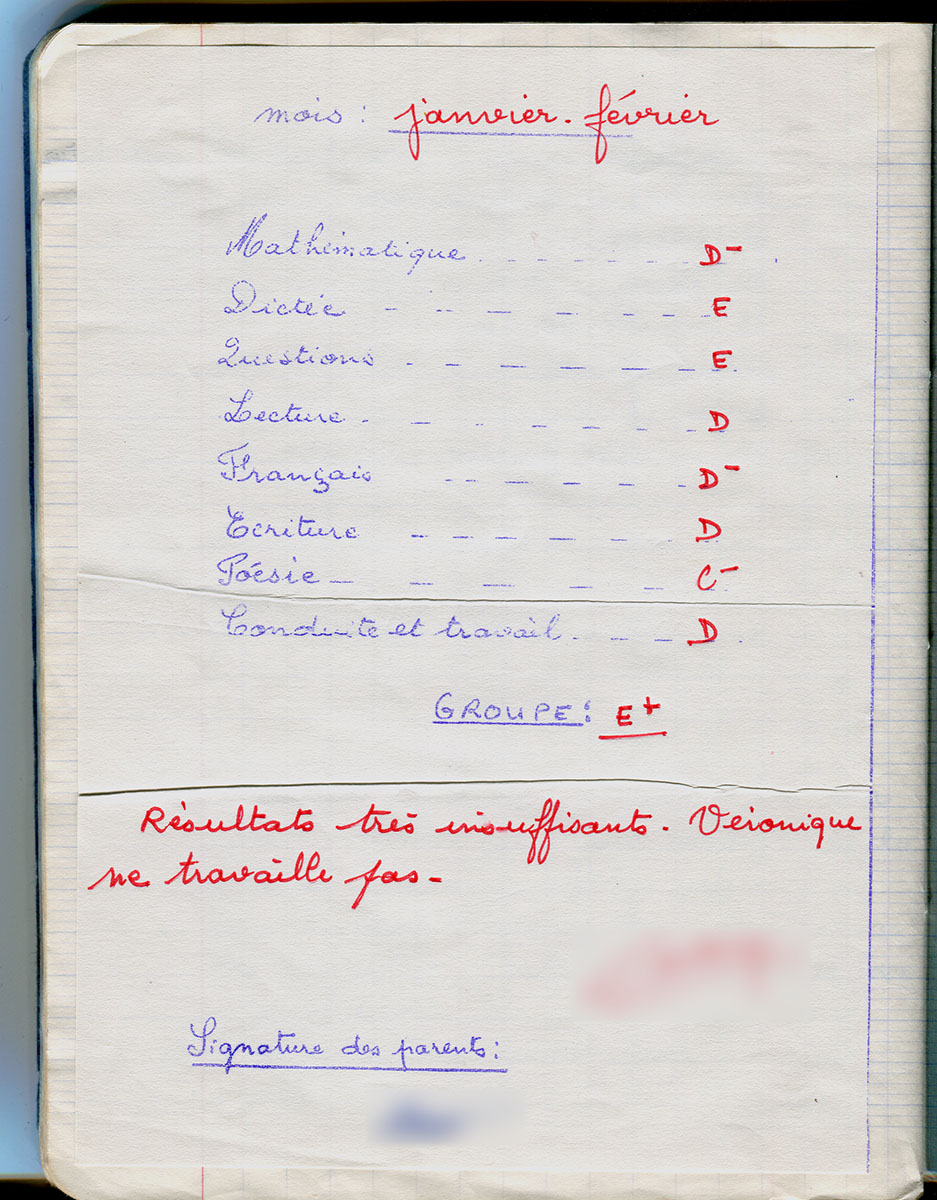 mois : janvier - février
Mathématique . _ _ _ _ _ _ D-
Dictée - - - _ _ _ _ _ E
Questions - - _ _ _ _ _ E
Lecture . - - - _ _ _ _ D
Français - - _ _ _ _ D-
Ecriture - _ _ _ _ _ D
Poésie _ _ _ _ _ _ C-
Conduite et travail . _ _ _ D
GROUPE : E+
Résultats très insuffisants. Véronique
ne travaille pas -
Signature des parents :